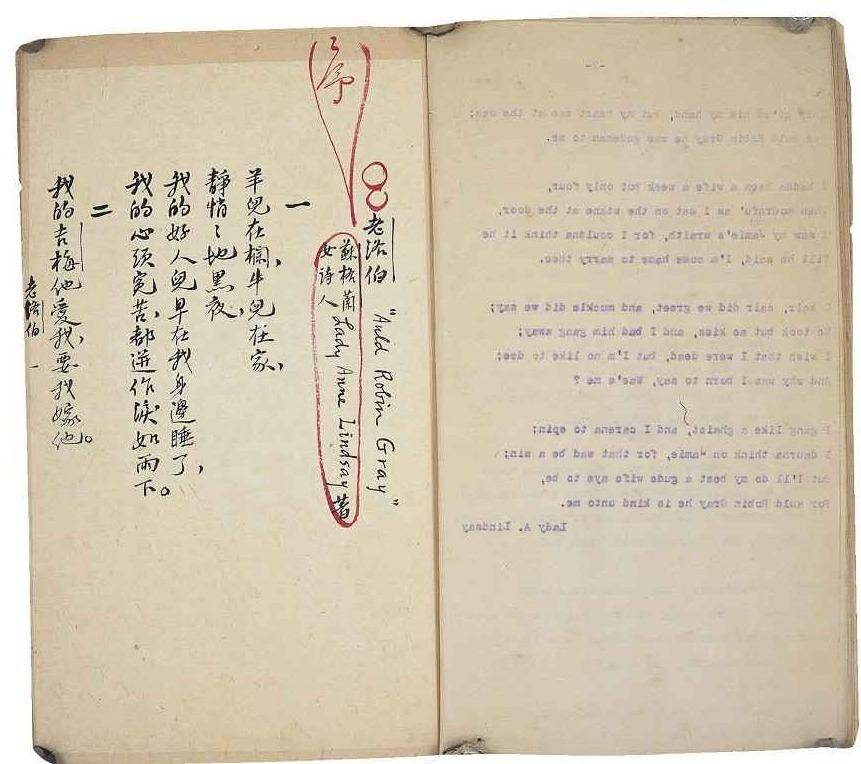 -2-
They gi'ed him my hand, but my heart was at the sea;
auld Robin Gray he was gudeman to me.
I hadna been a wife a week but only four,
When mournfu' as I sat on the stane at the door,
I saw my Jamie's wraith, for I couldna think it he
Till he said, I'm come hame to marry thee.
O sair, sair did we greet, and muckle did we say;
We took but ae kiss, and I bad him gang away;
I wish that I were dead, but I'm no like to dee;
And why was I born to say, Wae's me ?
I gang like a ghaist, and I carena to spin;
I daurna think on Jamie, for that wad be a sin;
But I'll do my best a gude wife aye to be,
For auld Robin Gray he is kind unto me.
Lady A. Lindsay
(序)
老洛伯 "Auld Robin Gray"
蘇格蘭
女诗人 Lady Anne Lindsay 著
一
羊兒在欄，牛兒在家，
靜悄〻地黑夜，
我的好人兒早在我身邊睡了，
我的心頭冤苦，都迸作淚如雨下。
二
我的吉梅他愛我，要我嫁他。
老洛伯 一